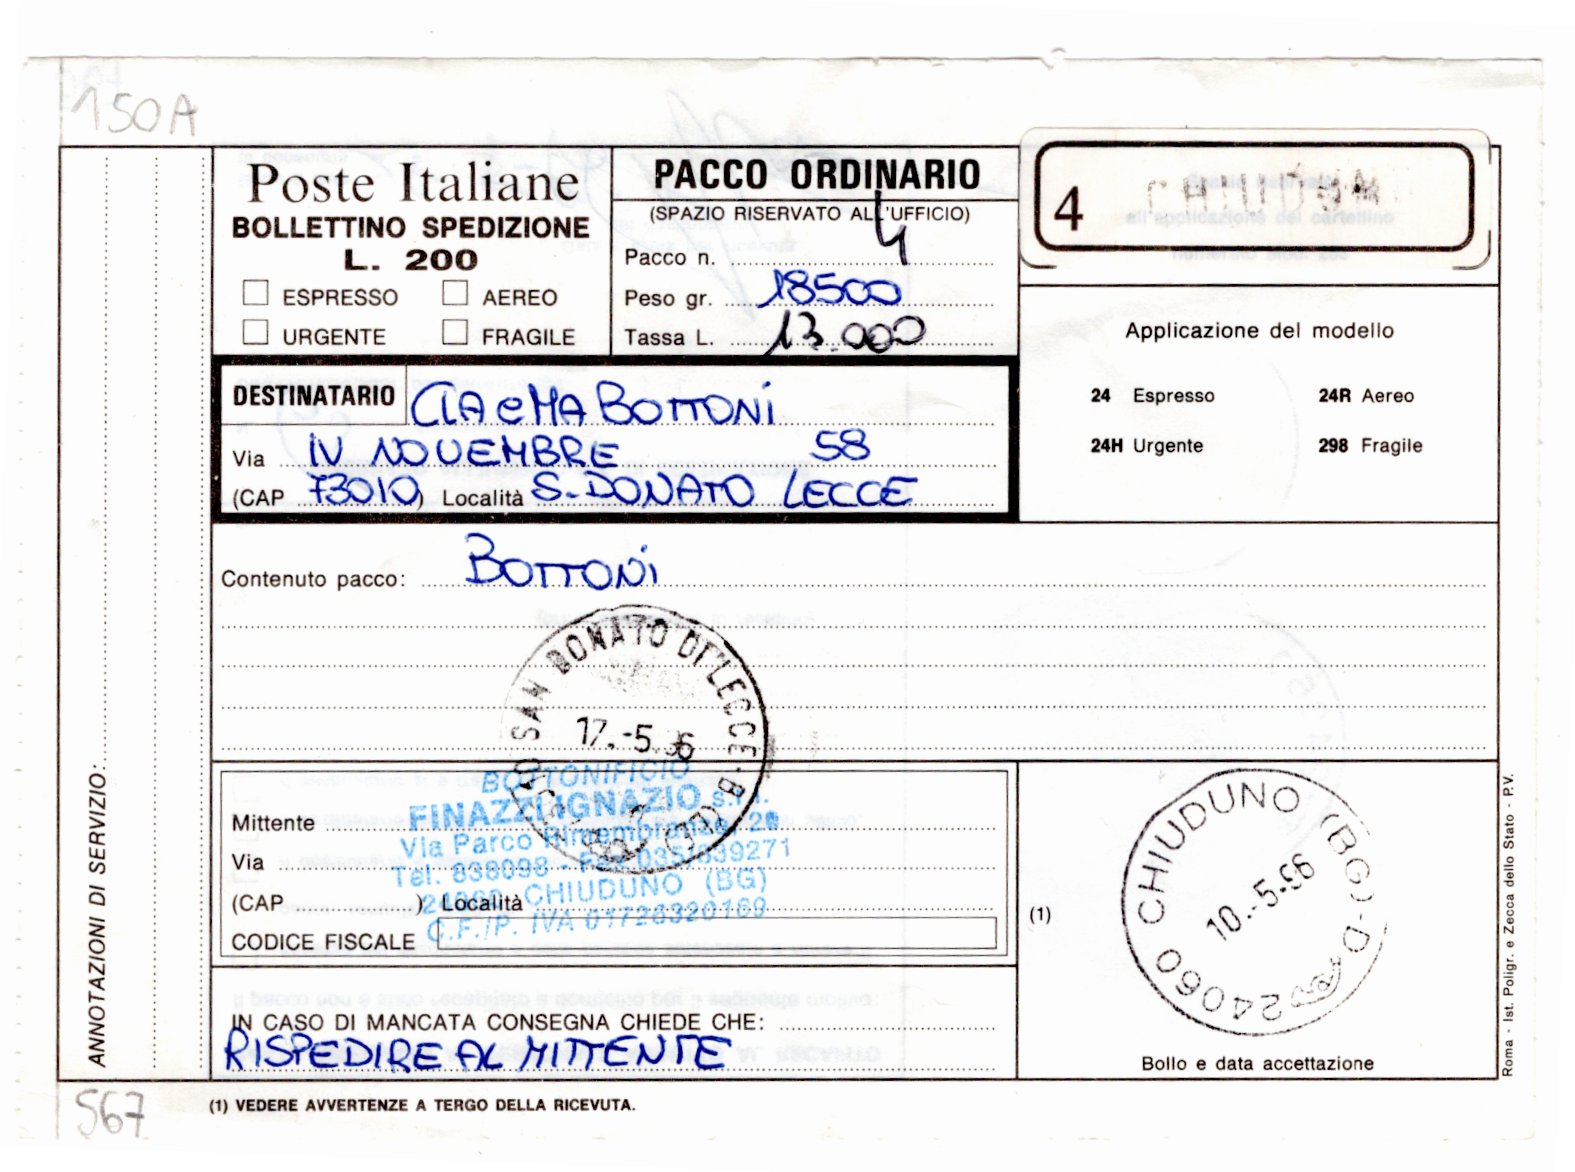 150A
Poste Italiane
BOLLETTINO SPEDIZIONE
L. 200
ESPRESSO AEREO
URGENTE FRAGILE
PACCO ORDINARIO
(SPAZIO RISERVATO ALL'UFFICIO)
Pacco n. 4
Peso gr. 18500
Tassa L. 13.000
4 CHIUDUN
Applicazione del modello
24 Espresso 24R Aereo
24H Urgente 298 Fragile
DESTINATARIO CIA eMA BOTTONI
Via IV NOVEMBRE 58
(CAP 73010) Località S. DONATO LECCE
Contenuto pacco: BOTTONI
SAN DONATO DI LECCE
17.-5.96
Mittente
Via
(CAP ) Località
CODICE FISCALE
BOTTONIFICIO
FINAZZI IGNAZIO s.r.l.
Via Parco Rimembranze, 20
Tel. 838098 - Fax 035/839271
24060 CHIUDUNO (BG)
C.F./P. IVA 01726320169
(1)
24060 CHIUDUNO (BG)-D
10.-5.96
Bollo e data accettazione
IN CASO DI MANCATA CONSEGNA CHIEDE CHE:
RISPEDIRE AL MITTENTE
ANNOTAZIONI DI SERVIZIO:
Roma - Ist. Poligr. e Zecca dello Stato - P.V.
567
(1) VEDERE AVVERTENZE A TERGO DELLA RICEVUTA.